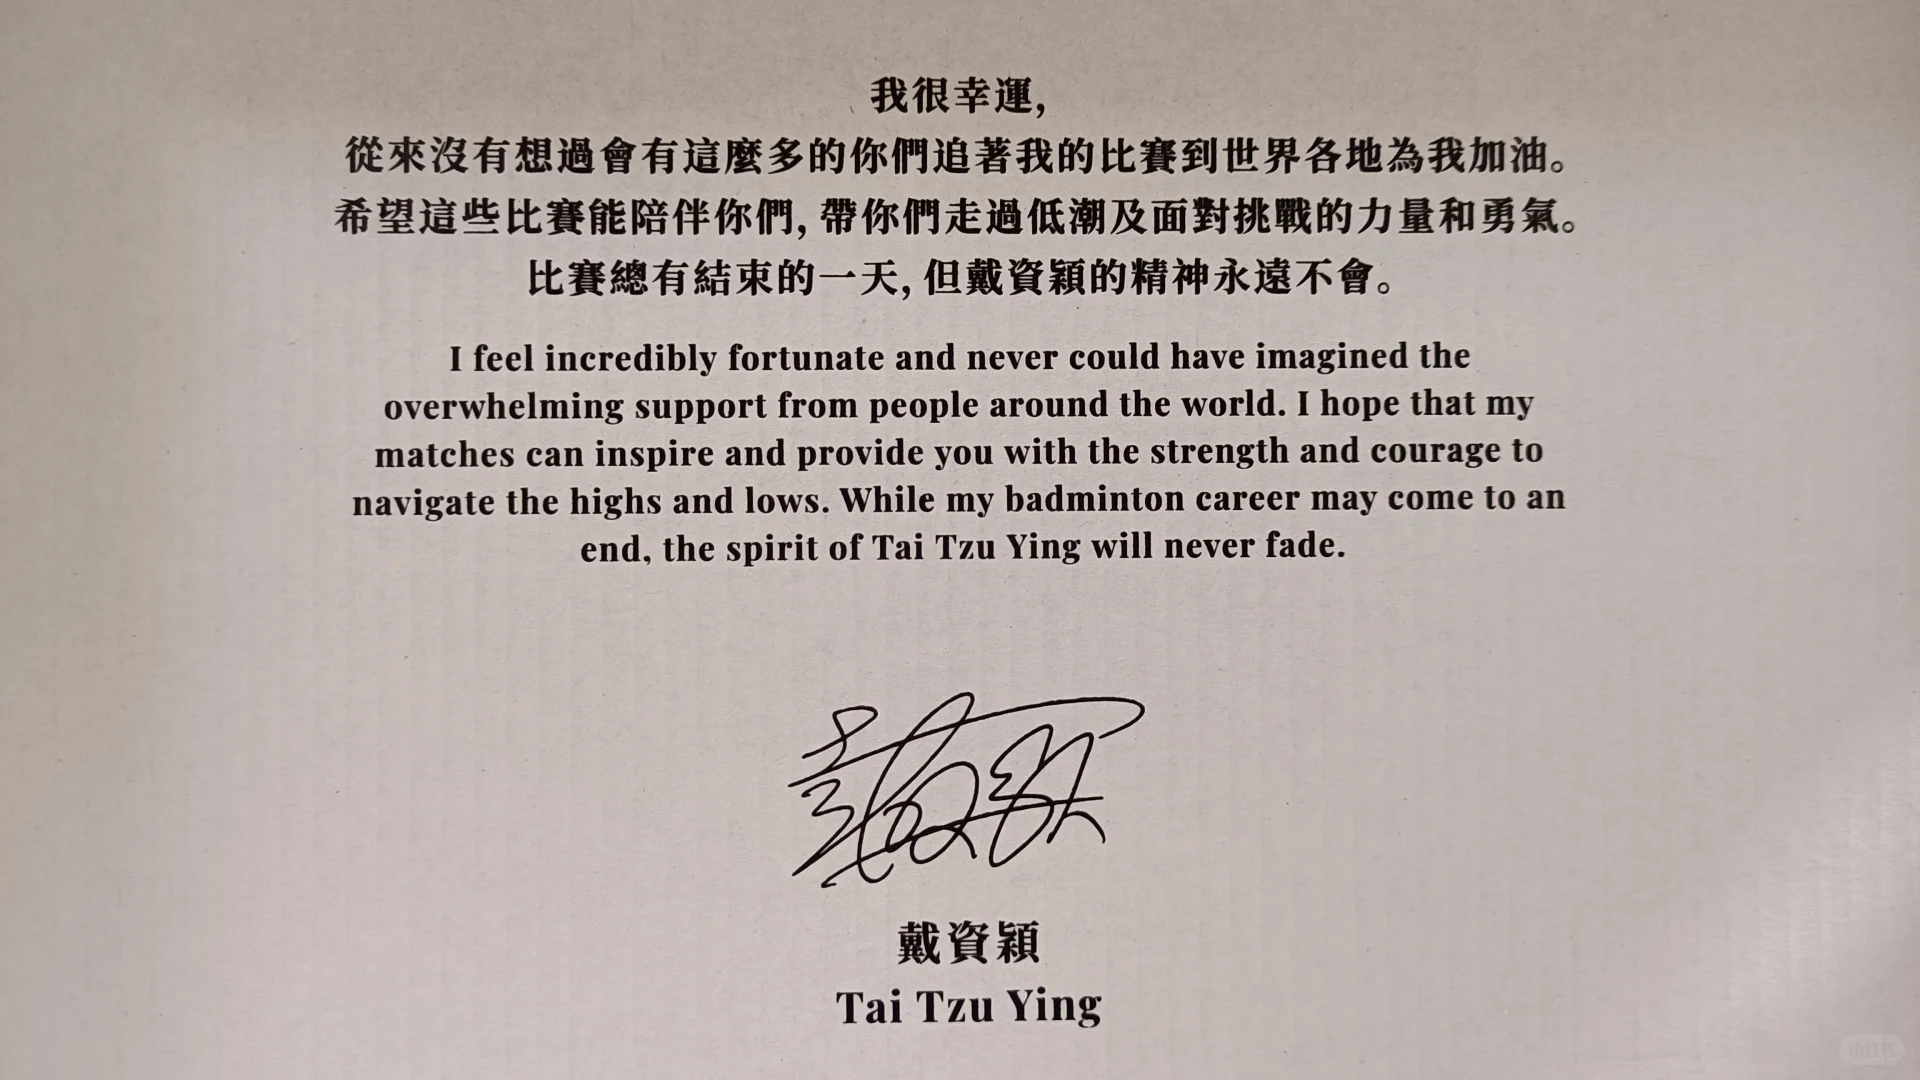 我很幸運,
從來沒有想過會有這麼多的你們追著我的比賽到世界各地為我加油。
希望這些比賽能陪伴你們, 帶你們走過低潮及面對挑戰的力量和勇氣。
比賽總有結束的一天, 但戴資穎的精神永遠不會。
I feel incredibly fortunate and never could have imagined the
overwhelming support from people around the world. I hope that my
matches can inspire and provide you with the strength and courage to
navigate the highs and lows. While my badminton career may come to an
end, the spirit of Tai Tzu Ying will never fade.
戴資穎
Tai Tzu Ying
小红书